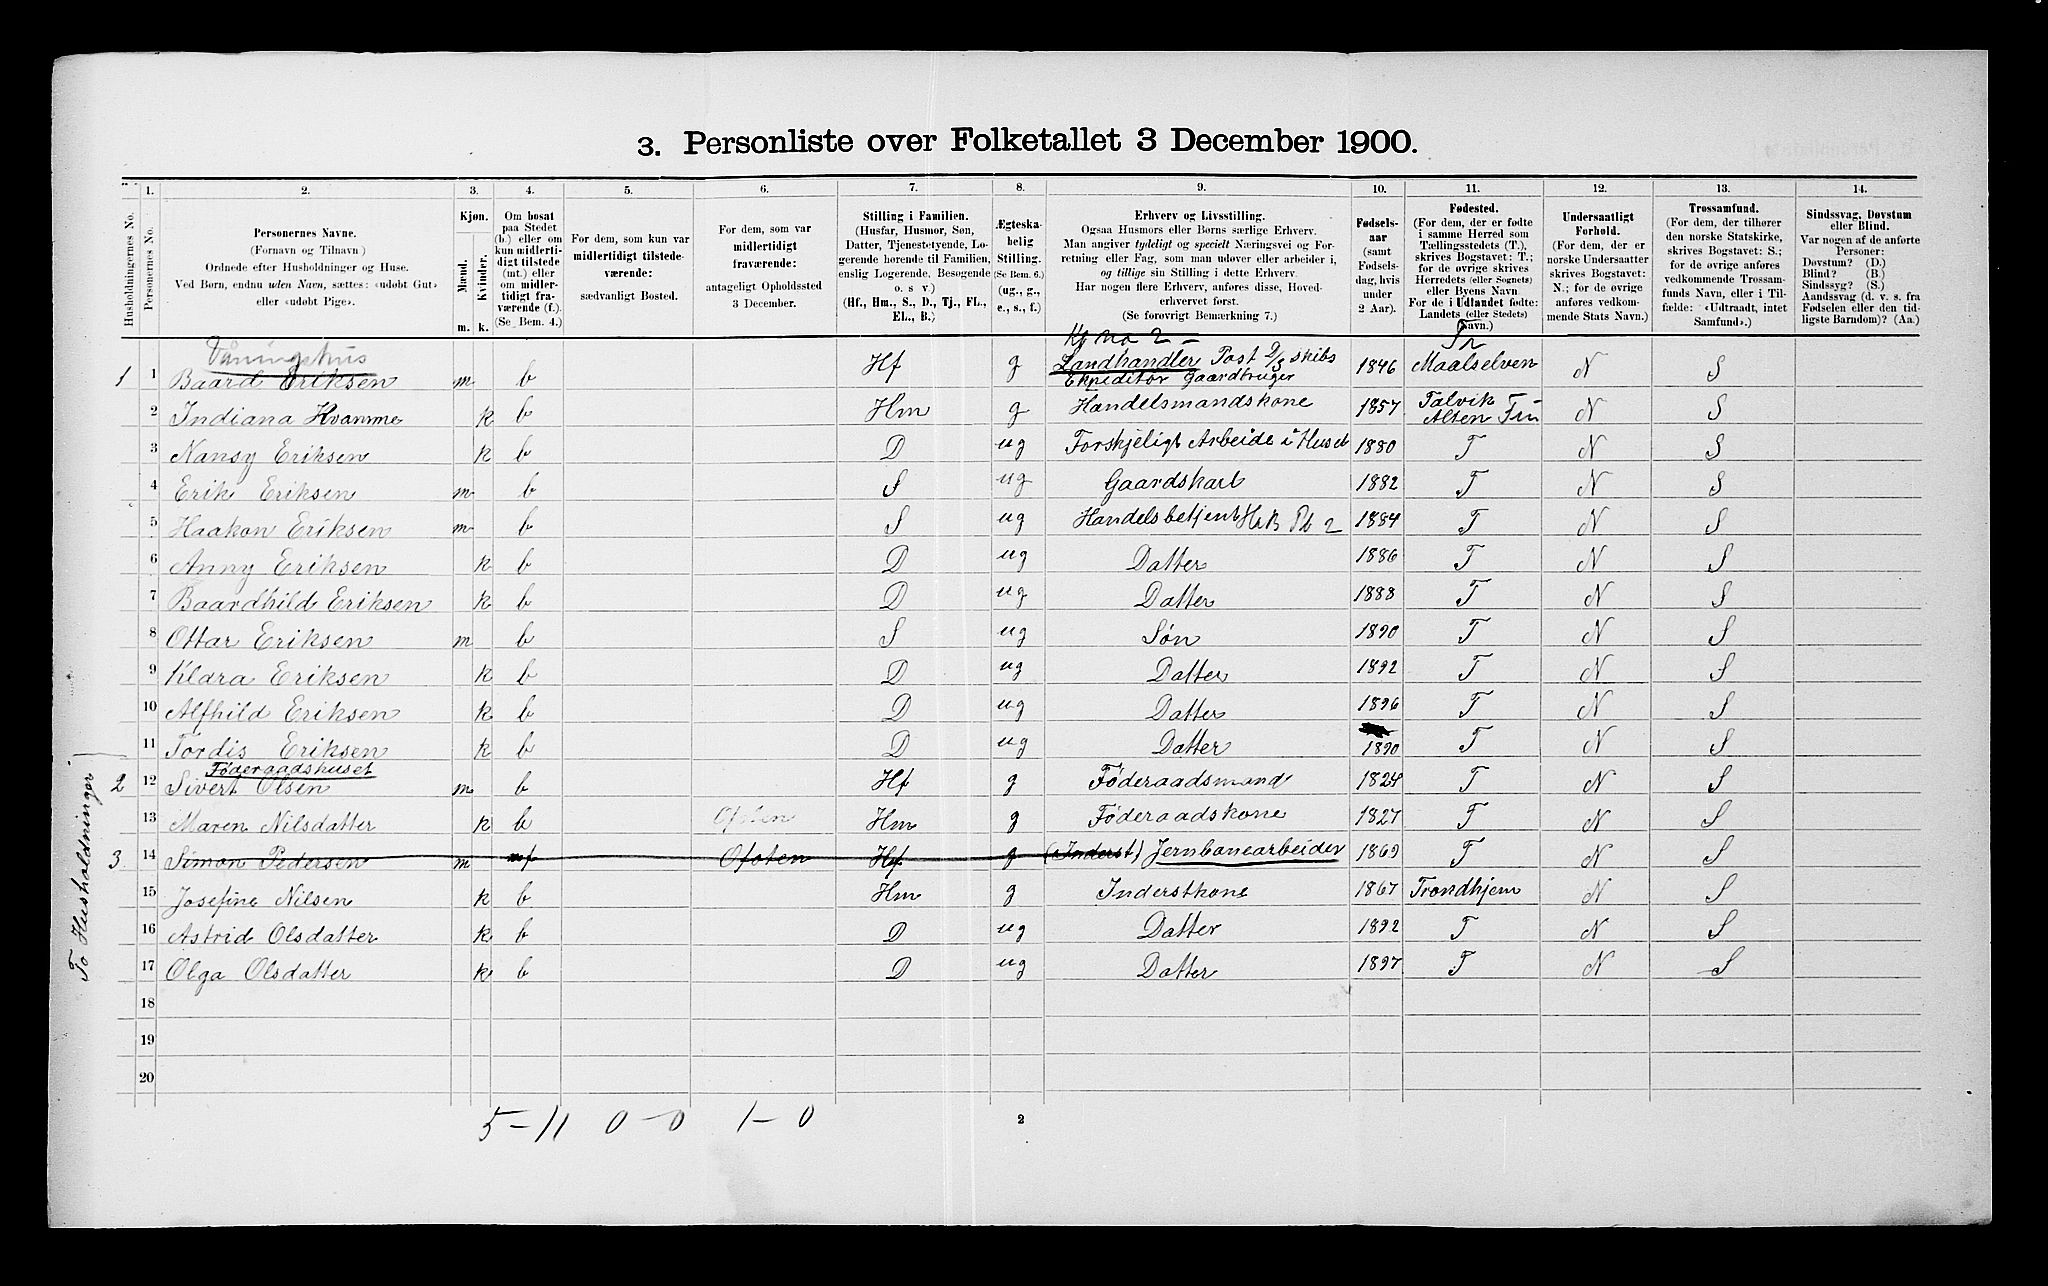 3. Personliste over Folketallet 3 December 1900.
1. 2. 3. 4. 5. 6. 7. 8. 9. 10. 11. 12. 13. 14.
Husholdningernes No.
Personernes No.
Personernes Navne.
(Fornavn og Tilnavn)
Ordnede efter Husholdninger og Huse.
Ved Børn, endnu uden Navn, sættes: «udøbt Gut»
eller «udøbt Pige».
Kjøn.
Mænd.
Kvinder.
m. k.
Om bosat
paa Stedet
(b.) eller om
kun midlerti-
digt tilstede
(mt.) eller
om midler-
tidigt fra-
værende (f.).
(Se Bem. 4.)
For dem, som kun var
midlertidigt tilstede-
værende:
sædvanligt Bosted.
For dem, som var
midlertidigt
fraværende:
antageligt Opholdssted
3 December.
Stilling i Familien.
(Husfar, Husmor, Søn,
Datter, Tjenestetyende, Lo-
gerende hørende til Familien,
enslig Logerende, Besøgende
o. s. v.)
(Hf., Hm., S., D., Tj., FL.,
EL., B.)
Ægteska-
belig
Stilling.
(Se Bem. 6.)
(ug., g.,
e., s., f.)
Erhverv og Livsstilling.
Ogsaa Husmors eller Børns særlige Erhverv.
Man angiver tydeligt og specielt Næringsvei og For-
retning eller Fag, som man udøver eller arbeider i,
og tillige sin Stilling i dette Erhverv.
Har nogen flere Erhverv, anføres disse, Hoved-
erhvervet først.
(Se forøvrigt Bemærkning 7.)
Fødsels-
aar
(samt
Fødsels-
dag, hvis
under
2 Aar).
Fødested.
(For dem, der er fødte
i samme Herred som
Tællingsstedets (T.),
skrives Bogstavet: T.;
for de øvrige skrives
Herredets (eller Sognets)
eller Byens Navn
For de i Udlandet fødte:
Landets (eller Stedets)
Navn.)
Undersaatligt
Forhold.
(For dem, der er
norske Undersaatter
skrives Bogstavet:
N.; for de øvrige
anføres vedkom-
mende Stats Navn.)
Trossamfund.
(For dem, der tilhører
den norske Statskirke,
skrives Bogstavet: S.;
for de øvrige anføres
vedkommende Trossam-
funds Navn, eller i Til-
fælde: «Udtraadt, intet
Samfund».)
Sindssvag, Døvstum
eller Blind.
Var nogen af de anførte
Personer:
Døvstum? (D.)
Blind? (B.)
Sindssyg? (S.)
Aandssvag (d. v. s. fra
Fødselen eller den tid-
ligste Barndom)? (Aa.)
Våningshus
Kf no 2 - Tr
1 1 Baard Eriksen m b Hf g Landhandler Post D/S skibs 1846 Maalselven N S
Expeditør Gaardbruger
2 Indiana Hvamme k b Hm g Handelsmandskone 1857 Talvik N S
Alten Fin
3 Nansy Eriksen k b D ug Forskjeligt Arbeide i Huset 1880 T N S
4 Erik Eriksen m b S ug Gaardskarl 1882 T N S
5 Haakon Eriksen m b S ug Handelsbetjent 2 1884 T N S
6 Anny Eriksen k b D ug Datter 1886 T N S
7 Baardhild Eriksen k b D ug Datter 1888 T N S
8 Ottar Eriksen m b S ug Søn 1890 T N S
9 Klara Eriksen k b D ug Datter 1892 T N S
10 Alfhild Eriksen k b D ug Datter 1896 T N S
11 Tordis Eriksen k b D ug Datter 1890 T N S
Føderaadshuset
2 12 Sivert Olsen m b Hf g Føderaadsmand 1824 T N S
13 Maren Nilsdatter k b Ofoten Hm g Føderaadskone 1827 T N S
3 14 Simon Pedersen m f Ofoten Hf g (Inderst) Jernbanearbeider 1869 T N S
15 Josefine Nilsen k b Hm g Inderstkone 1867 Trondhjem N S
16 Astrid Olsdatter k b D ug Datter 1892 T N S
17 Olga Olsdatter k b D ug Datter 1897 T N S
18
19
20
To Husholdninger
5 - 11 0 - 0 1 - 0
2